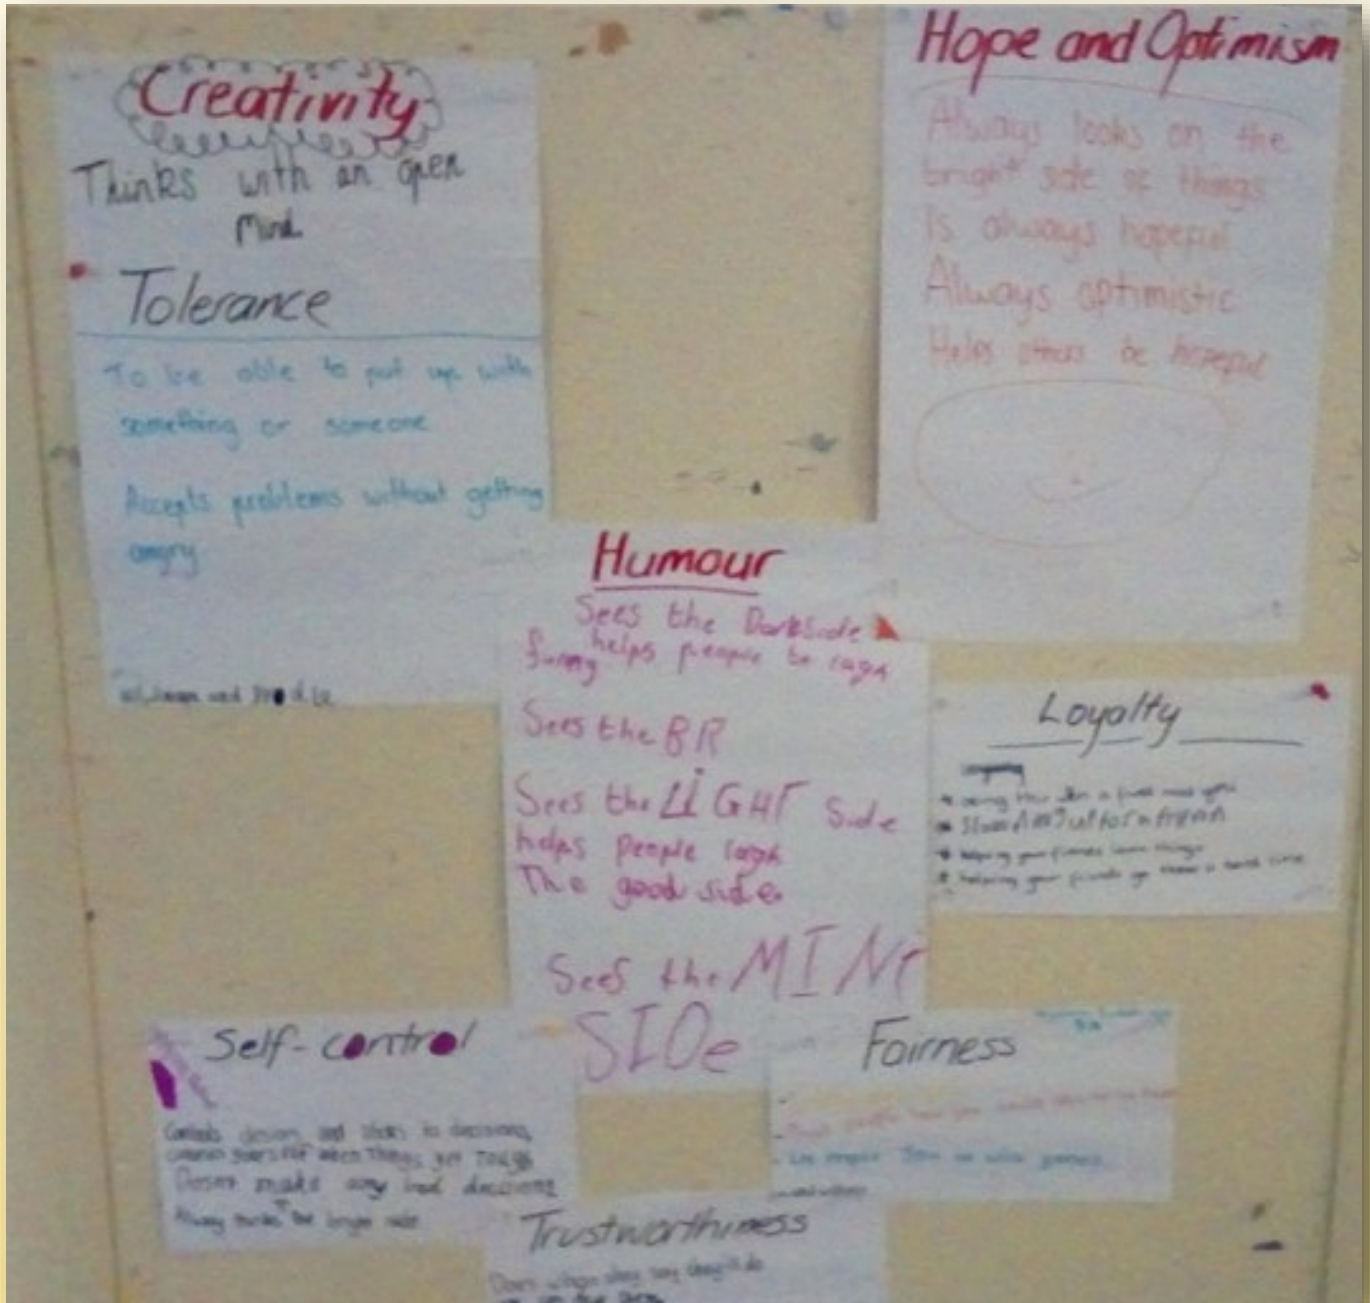 Creativity
Thinks with an open
Mind
Tolerance
To be able to put up with
something or someone
Accepts problems without getting
angry
Hope and Optimism
Always looks on the
bright side of things
Is always hopeful
Always optimistic
Helps others be hopeful
Humour
Sees the Darkside
funny helps people to
Sees the BR
Sees the LiGHT Side
helps people
The good side
Sees the MINi
SIDe
Loyalty
helping your friends learn things
helping your friends go a hard time
Self-control
Controls and sticks to decisions
when Things get Tough
Doesnt make any bad decisions
Always thinks the
Fairness
Let people Join in with games
Trustworthiness
Does when they say they'll do